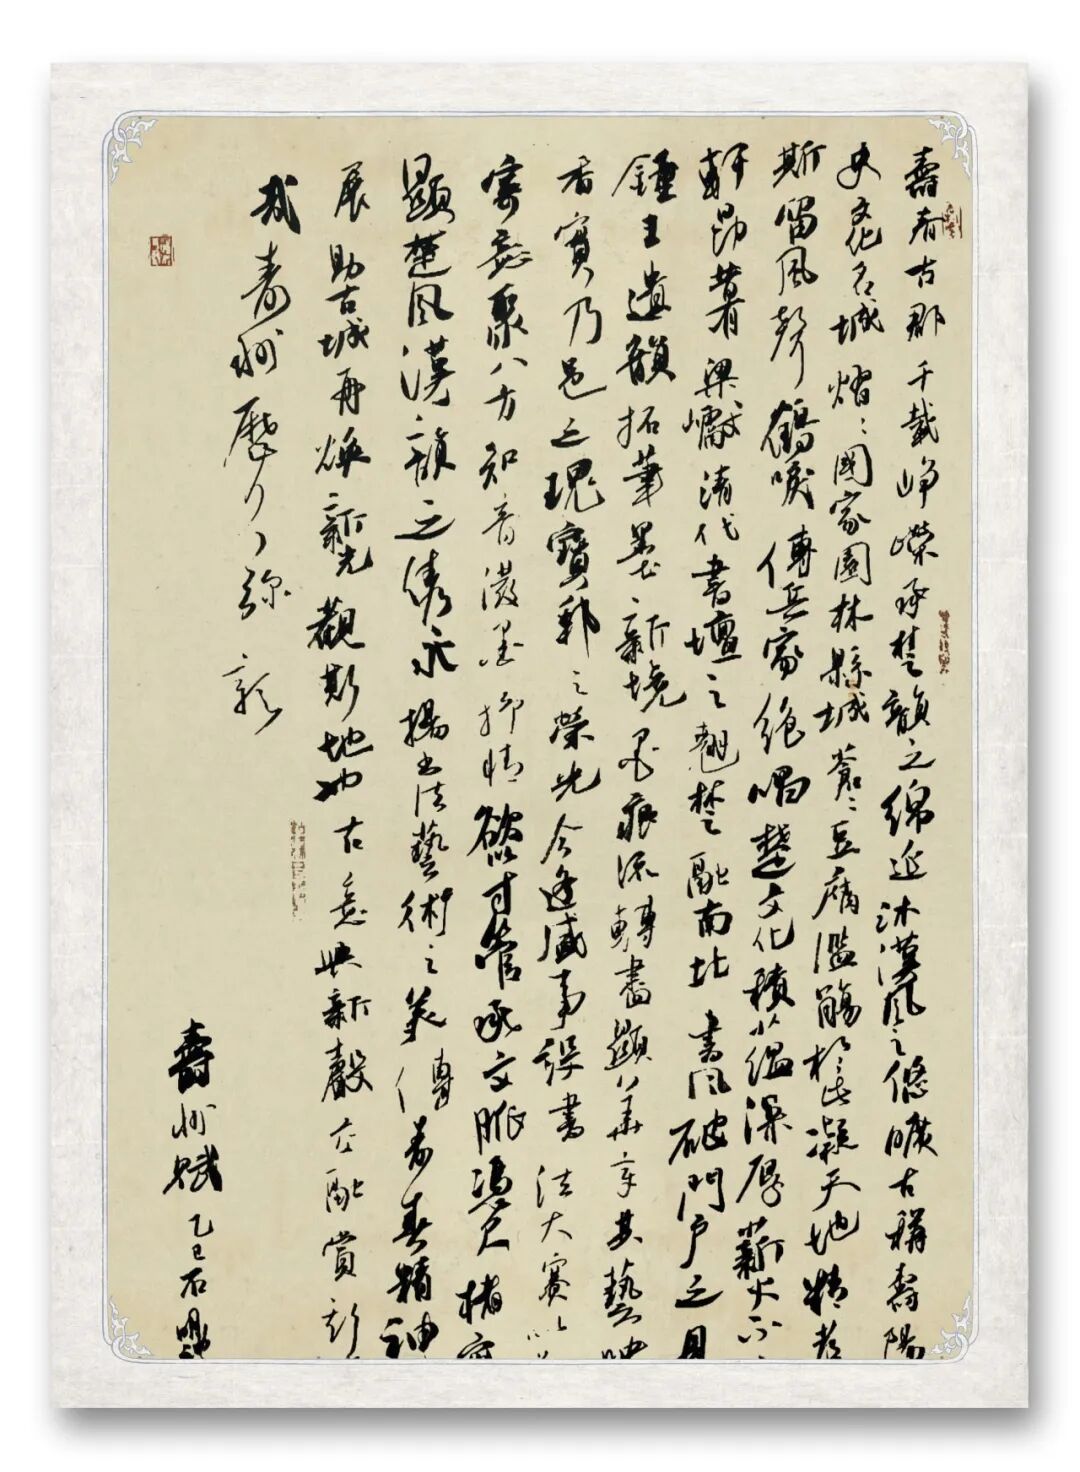 壽春古郡千載崢嶸承楚韻之綿延沐漢風之悠曠古稱壽陽
史文化名城熠熠國家園林縣城蒼蒼豆腐濫觴於此凝天地精
斯留風聲鶴唳傳兵家絕唱楚文化積蘊深厚薪火不
軒昂著梁巘清代書壇之翹楚融南北書風破門戶之見
鍾王遺韻拓筆墨新境墨痕流轉盡顯華章其藝
香實乃邑之瑰寶郵之榮光今逢盛事設書法大賽以
寄意聚八方知音潑墨抒情慾寸管承文脈憑尺楮
顯楚風漢韻之雋永揚書法藝術之美傳壽春精神
展助古城再煥新光觀斯地也古意與新聲交融賞彭
哉壽州歷久彌新
壽州賦乙巳石